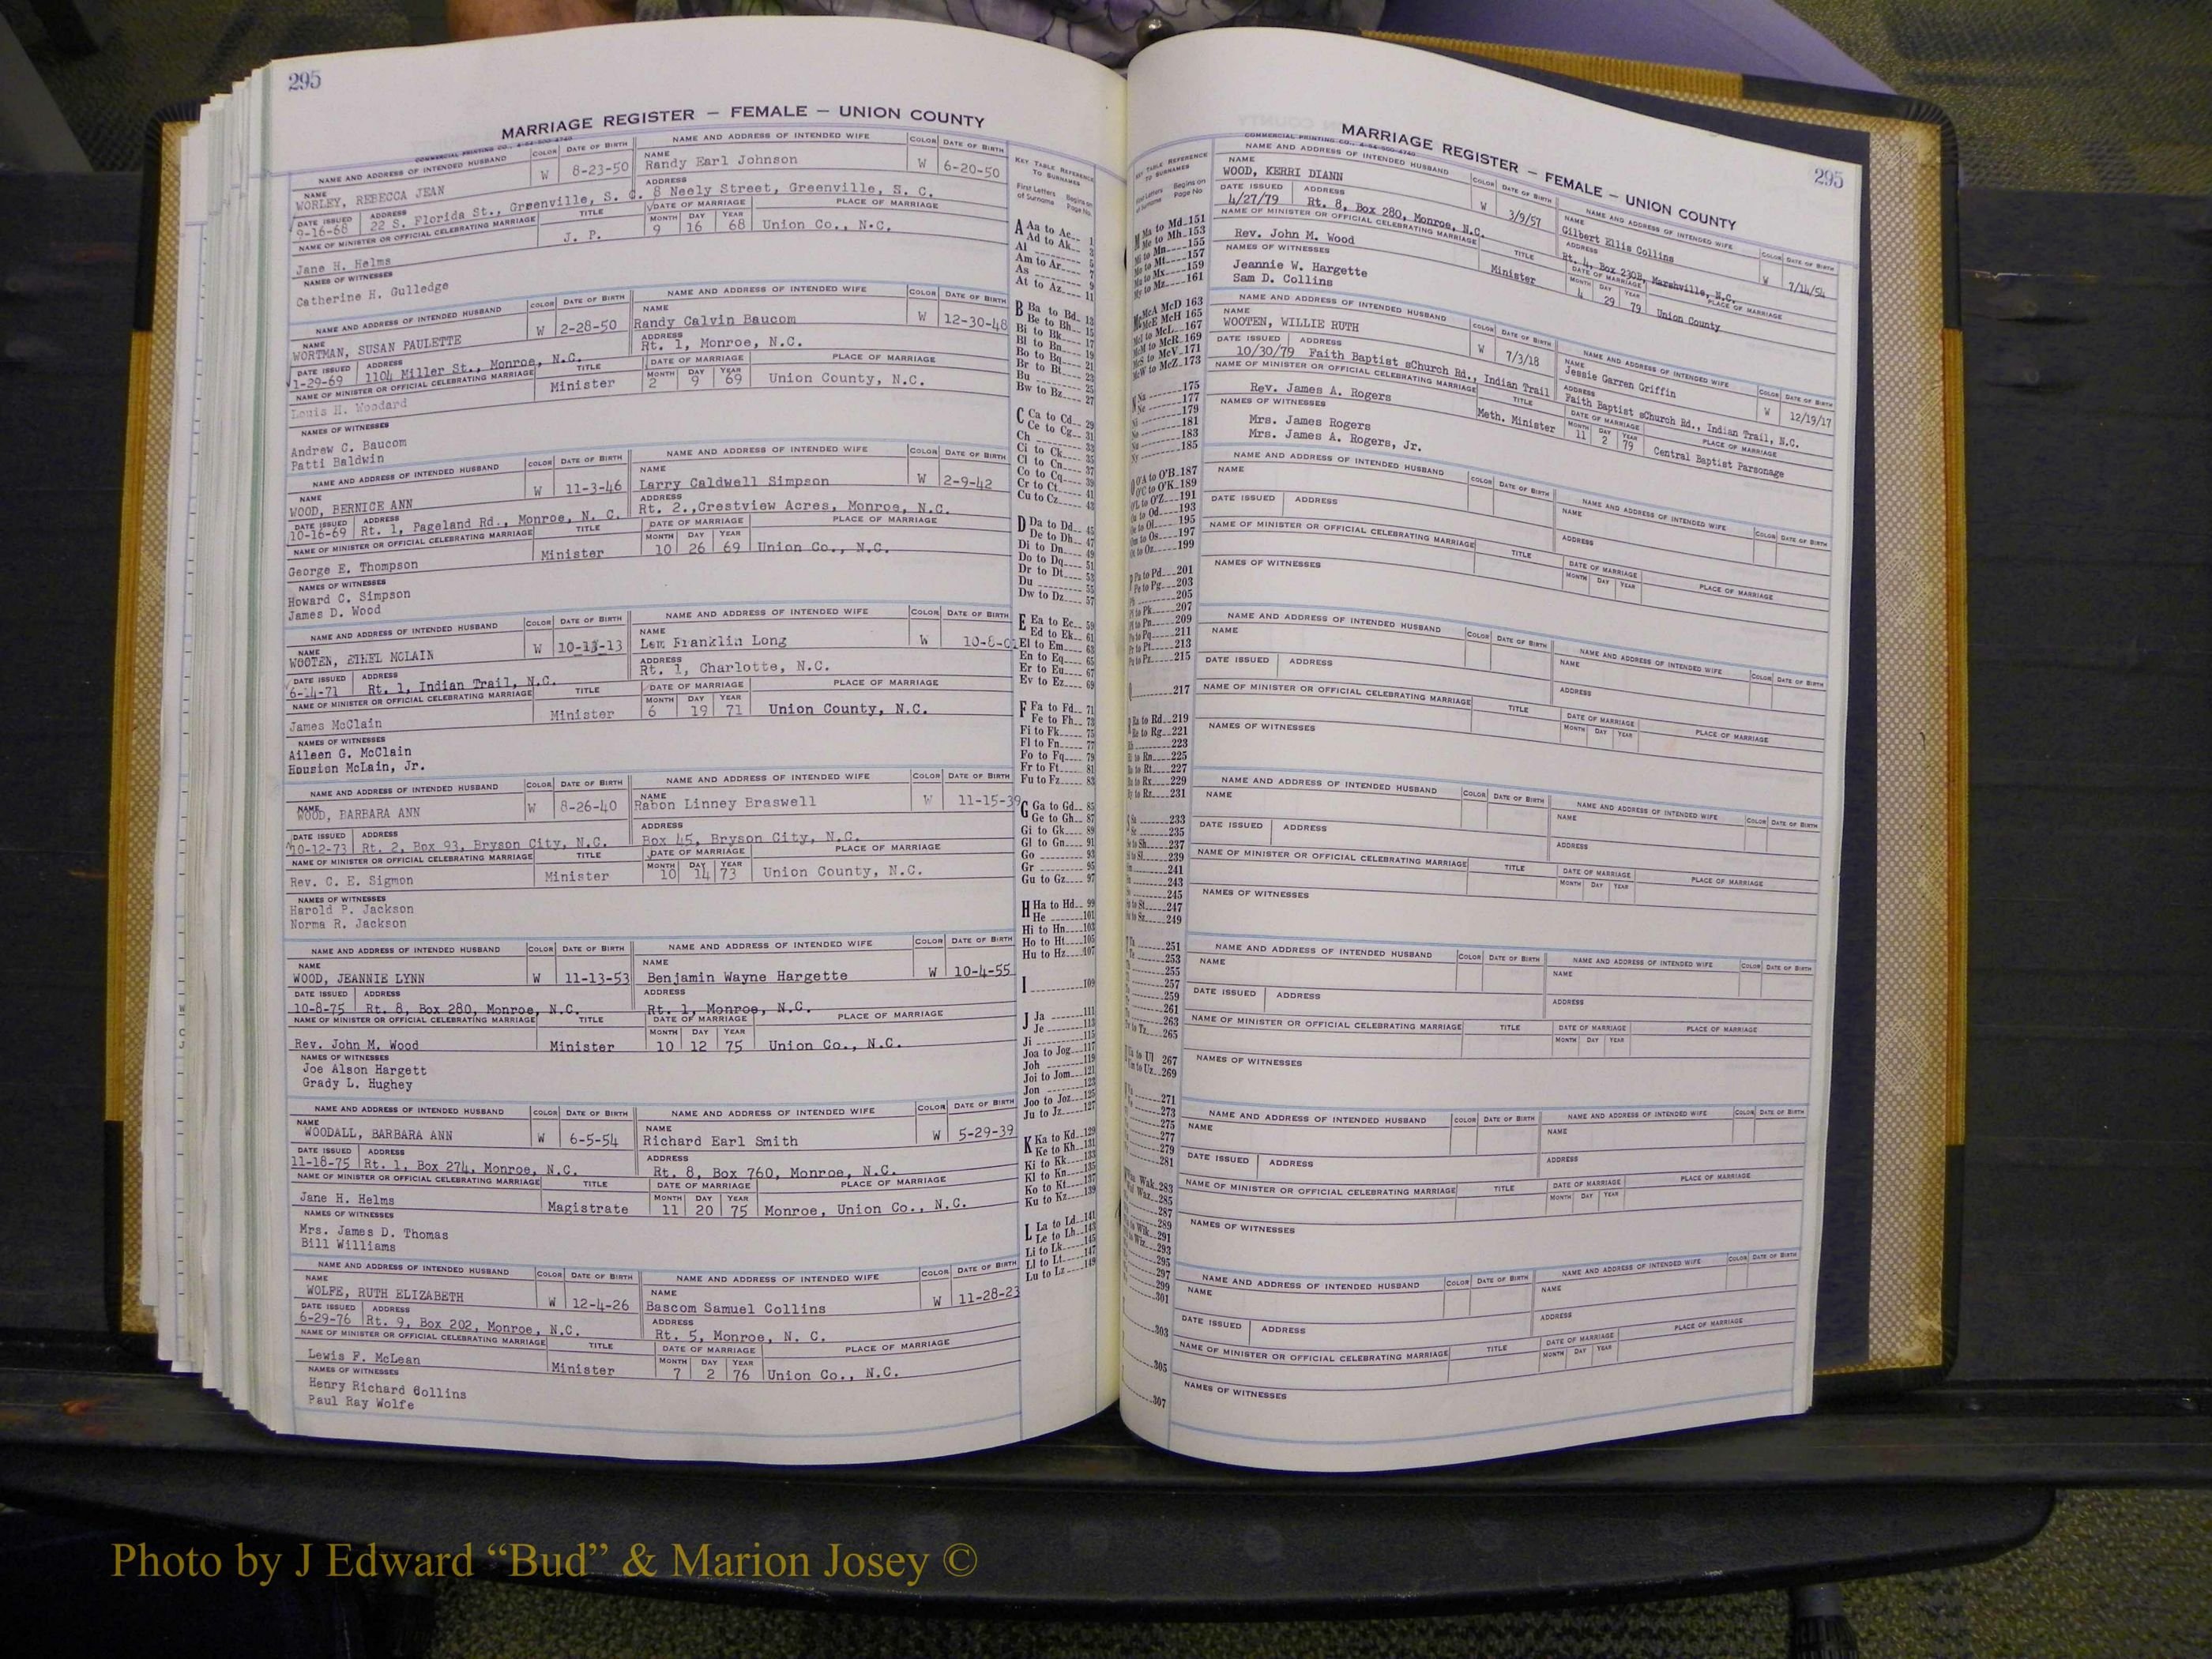 295
MARRIAGE REGISTER — FEMALE — UNION COUNTY
COMMERCIAL PRINTING CO.
NAME AND ADDRESS OF INTENDED HUSBAND COLOR DATE OF BIRTH NAME AND ADDRESS OF INTENDED WIFE COLOR DATE OF BIRTH
NAME WORLEY, REBECCA JEAN W 8-23-50 NAME Randy Earl Johnson W 6-20-50
DATE ISSUED 9-16-68 ADDRESS 22 S. Florida St., Greenville, S. C. ADDRESS 8 Neely Street, Greenville, S. C.
NAME OF MINISTER OR OFFICIAL CELEBRATING MARRIAGE TITLE DATE OF MARRIAGE PLACE OF MARRIAGE
Jane H. Helms J. P. MONTH 9 DAY 16 YEAR 68 Union Co., N.C.
NAMES OF WITNESSES
Catherine H. Gulledge
NAME AND ADDRESS OF INTENDED HUSBAND COLOR DATE OF BIRTH NAME AND ADDRESS OF INTENDED WIFE COLOR DATE OF BIRTH
NAME WORTMAN, SUSAN PAULETTE W 2-28-50 NAME Randy Calvin Baucom W 12-30-48
DATE ISSUED 1-29-69 ADDRESS 1104 Miller St., Monroe, N.C. ADDRESS Rt. 1, Monroe, N.C.
NAME OF MINISTER OR OFFICIAL CELEBRATING MARRIAGE TITLE DATE OF MARRIAGE PLACE OF MARRIAGE
Louis H. Woodard Minister MONTH 2 DAY 9 YEAR 69 Union County, N.C.
NAMES OF WITNESSES
Andrew C. Baucom
Patti Baldwin
NAME AND ADDRESS OF INTENDED HUSBAND COLOR DATE OF BIRTH NAME AND ADDRESS OF INTENDED WIFE COLOR DATE OF BIRTH
NAME WOOD, BERNICE ANN W 11-3-46 NAME Larry Caldwell Simpson W 2-9-42
DATE ISSUED 10-16-69 ADDRESS Rt. 1, Pageland Rd., Monroe, N. C. ADDRESS Rt. 2.,Crestview Acres, Monroe, N.C.
NAME OF MINISTER OR OFFICIAL CELEBRATING MARRIAGE TITLE DATE OF MARRIAGE PLACE OF MARRIAGE
George E. Thompson Minister MONTH 10 DAY 26 YEAR 69 Union Co., N.C.
NAMES OF WITNESSES
Howard C. Simpson
James D. Wood
NAME AND ADDRESS OF INTENDED HUSBAND COLOR DATE OF BIRTH NAME AND ADDRESS OF INTENDED WIFE COLOR DATE OF BIRTH
NAME WOOTEN, ETHEL MCLAIN W 10-13-13 NAME Lem Franklin Long W
DATE ISSUED 6-14-71 ADDRESS Rt. 1, Indian Trail, N.C. ADDRESS Rt. 1, Charlotte, N.C.
NAME OF MINISTER OR OFFICIAL CELEBRATING MARRIAGE TITLE DATE OF MARRIAGE PLACE OF MARRIAGE
James McClain Minister MONTH 6 DAY 19 YEAR 71 Union County, N.C.
NAMES OF WITNESSES
Aileen G. McClain
Housion McLain, Jr.
NAME AND ADDRESS OF INTENDED HUSBAND COLOR DATE OF BIRTH NAME AND ADDRESS OF INTENDED WIFE COLOR DATE OF BIRTH
NAME WOOD, BARBARA ANN W 8-26-40 NAME Rabon Linney Braswell W 11-15-39
DATE ISSUED 10-12-73 ADDRESS Rt. 2, Box 93, Bryson City, N.C. ADDRESS Box 45, Bryson City, N.C.
NAME OF MINISTER OR OFFICIAL CELEBRATING MARRIAGE TITLE DATE OF MARRIAGE PLACE OF MARRIAGE
Rev. C. E. Sigmon Minister MONTH 10 DAY 14 YEAR 73 Union County, N.C.
NAMES OF WITNESSES
Harold P. Jackson
Norma R. Jackson
NAME AND ADDRESS OF INTENDED HUSBAND COLOR DATE OF BIRTH NAME AND ADDRESS OF INTENDED WIFE COLOR DATE OF BIRTH
NAME WOOD, JEANNIE LYNN W 11-13-53 NAME Benjamin Wayne Hargette W 10-4-55
DATE ISSUED 10-8-75 ADDRESS Rt. 8, Box 280, Monroe, N.C. ADDRESS Rt. 1, Monroe, N.C.
NAME OF MINISTER OR OFFICIAL CELEBRATING MARRIAGE TITLE DATE OF MARRIAGE PLACE OF MARRIAGE
Rev. John M. Wood Minister MONTH 10 DAY 12 YEAR 75 Union Co., N.C.
NAMES OF WITNESSES
Joe Alson Hargett
Grady L. Hughey
NAME AND ADDRESS OF INTENDED HUSBAND COLOR DATE OF BIRTH NAME AND ADDRESS OF INTENDED WIFE COLOR DATE OF BIRTH
NAME WOODALL, BARBARA ANN W 6-5-54 NAME Richard Earl Smith W 5-29-39
DATE ISSUED 11-18-75 ADDRESS Rt. 1, Box 274, Monroe, N.C. ADDRESS Rt. 8, Box 760, Monroe, N.C.
NAME OF MINISTER OR OFFICIAL CELEBRATING MARRIAGE TITLE DATE OF MARRIAGE PLACE OF MARRIAGE
Jane H. Helms Magistrate MONTH 11 DAY 20 YEAR 75 Monroe, Union Co., N.C.
NAMES OF WITNESSES
Mrs. James D. Thomas
Bill Williams
NAME AND ADDRESS OF INTENDED HUSBAND COLOR DATE OF BIRTH NAME AND ADDRESS OF INTENDED WIFE COLOR DATE OF BIRTH
NAME WOLFE, RUTH ELIZABETH W 12-4-26 NAME Bascom Samuel Collins W 11-28-23
DATE ISSUED 6-29-76 ADDRESS Rt. 9, Box 202, Monroe, N.C. ADDRESS Rt. 5, Monroe, N. C.
NAME OF MINISTER OR OFFICIAL CELEBRATING MARRIAGE TITLE DATE OF MARRIAGE PLACE OF MARRIAGE
Lewis F. McLean Minister MONTH 7 DAY 2 YEAR 76 Union Co., N.C.
NAMES OF WITNESSES
Henry Richard Collins
Paul Ray Wolfe
KEY TABLE REFERENCE TO SURNAMES
First Letters of Surname Begins on Page No.
A Aa to Ac 1
Ad to Ak 3
Al 5
Am to Ar 7
As 9
At to Az 11
B Ba to Bd 13
Be to Bh 15
Bi to Bk 17
Bl to Bn 19
Bo to Bq 21
Br to Bt 23
Bu 25
Bw to Bz 27
C Ca to Cd 29
Ce to Cg 31
Ch 33
Ci to Ck 35
Cl to Cn 37
Co to Cq 39
Cr to Ct 41
Cu to Cz 43
D Da to Dd 45
De to Dh 47
Di to Dn 49
Do to Dq 51
Dr to Dt 53
Du 55
Dw to Dz 57
E Ea to Ec 59
Ed to Ek 61
El to Em 63
En to Eq 65
Er to Eu 67
Ev to Ez 69
F Fa to Fd 71
Fe to Fh 73
Fi to Fk 75
Fl to Fn 77
Fo to Fq 79
Fr to Ft 81
Fu to Fz 83
G Ga to Gd 85
Ge to Gh 87
Gi to Gk 89
Gl to Gn 91
Go 93
Gr 95
Gu to Gz 97
H Ha to Hd 99
He 101
Hi to Hn 103
Ho to Ht 105
Hu to Hz 107
I 109
J Ja 111
Je 113
Ji 115
Joa to Jog 117
Joh 119
Joi to Jom 121
Jon 123
Joo to Joz 125
Ju to Jz 127
K Ka to Kd 129
Ke to Kh 131
Ki to Kk 133
Kl to Kn 135
Ko to Kt 137
Ku to Kz 139
L La to Ld 141
Le to Lh 143
Li to Lk 145
Ll to Lt 147
Lu to Lz 149
Ma to Md 151
Me to Mh 153
155
157
159
161
McA McD 163
McE McH 165
McL 167
McM to McR 169
McV 171
McW to McZ 173
175
177
179
181
183
185
O'A to O'B 187
O'C to O'K 189
O'Z 191
Od 193
195
Os 197
Oz 199
Pa to Pd 201
Pe to Pg 203
205
207
209
211
213
215
217
Ra to Rd 219
Re to Rg 221
223
225
227
229
231
233
235
237
239
241
243
245
247
249
251
253
255
257
259
261
263
265
267
269
271
273
275
277
279
281
283
285
287
289
291
293
295
297
299
301
303
305
307
295
MARRIAGE REGISTER — FEMALE — UNION COUNTY
COMMERCIAL PRINTING CO.
NAME AND ADDRESS OF INTENDED HUSBAND COLOR DATE OF BIRTH NAME AND ADDRESS OF INTENDED WIFE COLOR DATE OF BIRTH
NAME WOOD, KERRI DIANN W 3/9/57 NAME Gilbert Ellis Collins W 7/14/54
DATE ISSUED 4/27/79 ADDRESS Rt. 8, Box 280, Monroe, N.C. ADDRESS Rt. 4, Box 230B, Marshville, N.C.
NAME OF MINISTER OR OFFICIAL CELEBRATING MARRIAGE TITLE DATE OF MARRIAGE PLACE OF MARRIAGE
Rev. John M. Wood Minister MONTH 4 DAY 29 YEAR 79 Union County
NAMES OF WITNESSES
Jeannie W. Hargette
Sam D. Collins
NAME AND ADDRESS OF INTENDED HUSBAND COLOR DATE OF BIRTH NAME AND ADDRESS OF INTENDED WIFE COLOR DATE OF BIRTH
NAME WOOTEN, WILLIE RUTH W 7/3/18 NAME Jessie Garren Griffin W 12/19/17
DATE ISSUED 10/30/79 ADDRESS Faith Baptist sChurch Rd., Indian Trail ADDRESS Faith Baptist sChurch Rd., Indian Trail, N.C.
NAME OF MINISTER OR OFFICIAL CELEBRATING MARRIAGE TITLE DATE OF MARRIAGE PLACE OF MARRIAGE
Rev. James A. Rogers Meth. Minister MONTH 11 DAY 2 YEAR 79 Central Baptist Parsonage
NAMES OF WITNESSES
Mrs. James Rogers
Mrs. James A. Rogers, Jr.
NAME AND ADDRESS OF INTENDED HUSBAND COLOR DATE OF BIRTH NAME AND ADDRESS OF INTENDED WIFE COLOR DATE OF BIRTH
NAME NAME
DATE ISSUED ADDRESS ADDRESS
NAME OF MINISTER OR OFFICIAL CELEBRATING MARRIAGE TITLE DATE OF MARRIAGE PLACE OF MARRIAGE
MONTH DAY YEAR
NAMES OF WITNESSES
NAME AND ADDRESS OF INTENDED HUSBAND COLOR DATE OF BIRTH NAME AND ADDRESS OF INTENDED WIFE COLOR DATE OF BIRTH
NAME NAME
DATE ISSUED ADDRESS ADDRESS
NAME OF MINISTER OR OFFICIAL CELEBRATING MARRIAGE TITLE DATE OF MARRIAGE PLACE OF MARRIAGE
MONTH DAY YEAR
NAMES OF WITNESSES
NAME AND ADDRESS OF INTENDED HUSBAND COLOR DATE OF BIRTH NAME AND ADDRESS OF INTENDED WIFE COLOR DATE OF BIRTH
NAME NAME
DATE ISSUED ADDRESS ADDRESS
NAME OF MINISTER OR OFFICIAL CELEBRATING MARRIAGE TITLE DATE OF MARRIAGE PLACE OF MARRIAGE
MONTH DAY YEAR
NAMES OF WITNESSES
NAME AND ADDRESS OF INTENDED HUSBAND COLOR DATE OF BIRTH NAME AND ADDRESS OF INTENDED WIFE COLOR DATE OF BIRTH
NAME NAME
DATE ISSUED ADDRESS ADDRESS
NAME OF MINISTER OR OFFICIAL CELEBRATING MARRIAGE TITLE DATE OF MARRIAGE PLACE OF MARRIAGE
MONTH DAY YEAR
NAMES OF WITNESSES
NAME AND ADDRESS OF INTENDED HUSBAND COLOR DATE OF BIRTH NAME AND ADDRESS OF INTENDED WIFE COLOR DATE OF BIRTH
NAME NAME
DATE ISSUED ADDRESS ADDRESS
NAME OF MINISTER OR OFFICIAL CELEBRATING MARRIAGE TITLE DATE OF MARRIAGE PLACE OF MARRIAGE
MONTH DAY YEAR
NAMES OF WITNESSES
NAME AND ADDRESS OF INTENDED HUSBAND COLOR DATE OF BIRTH NAME AND ADDRESS OF INTENDED WIFE COLOR DATE OF BIRTH
NAME NAME
DATE ISSUED ADDRESS ADDRESS
NAME OF MINISTER OR OFFICIAL CELEBRATING MARRIAGE TITLE DATE OF MARRIAGE PLACE OF MARRIAGE
MONTH DAY YEAR
NAMES OF WITNESSES
Photo by J Edward “Bud” & Marion Josey ©